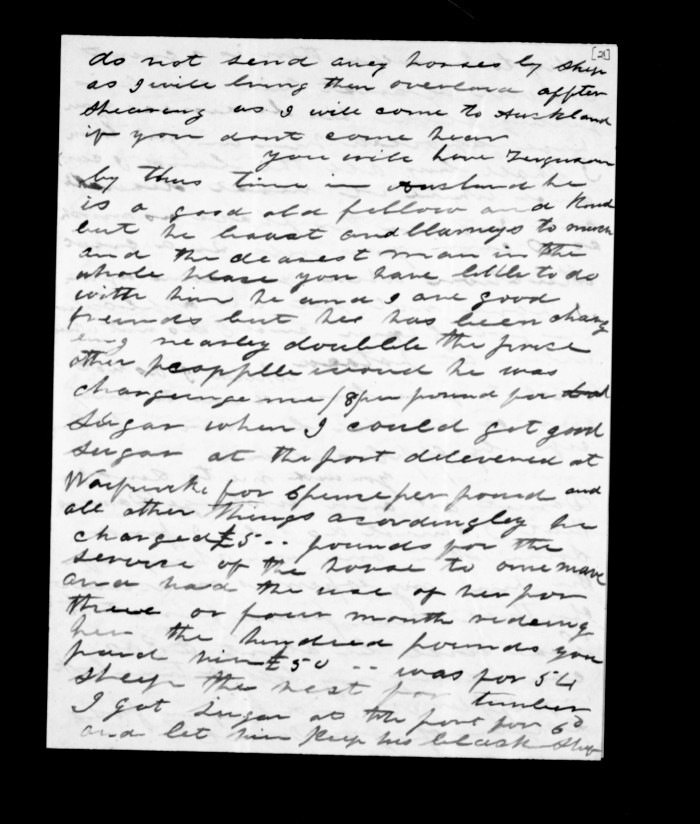 [21]
do not send aney horses by ship
as I will bring them overland affter
shearing as I will come to Auckland
if you dont come hear
you will have Ferguson
by thus time in he
is a good old fellow and kind
but he boast and blarneys to much
and the dearest man in the
whole place you have little to do
with him he and I are good
freinds but hes has been charg
eing nearley doubble the price
other peopple woud he was
chargeinge me /8 per pound for bad
sugar when I could got good
sugar at the port delevered at
Waipureku for 6 pence per pound and
all other things acordingley he
charged £5-- pounds for the
service of the horse to one mare
and had the use of her for
three or four month rideing
her the hundred pounds you
paid him £50 -- was for 54
sheep the rest for timber
I got sugar at the port for 6d
and let him keep his black ship